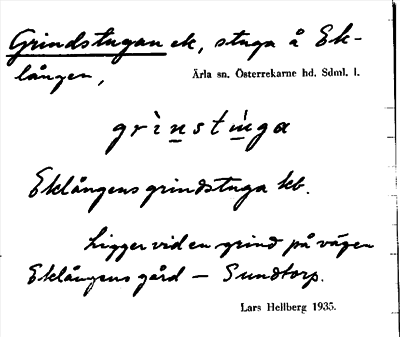 Grindstugan ek, stuga å Ek-
lången,
Ärla sn. Österrekarne hd. Sdml. l.
grìnstùga
Eklångens grindstuga kb.
Ligger vid en grind på vägen
Eklångens gård – Sundtorp.
Lars Hellberg 1935.